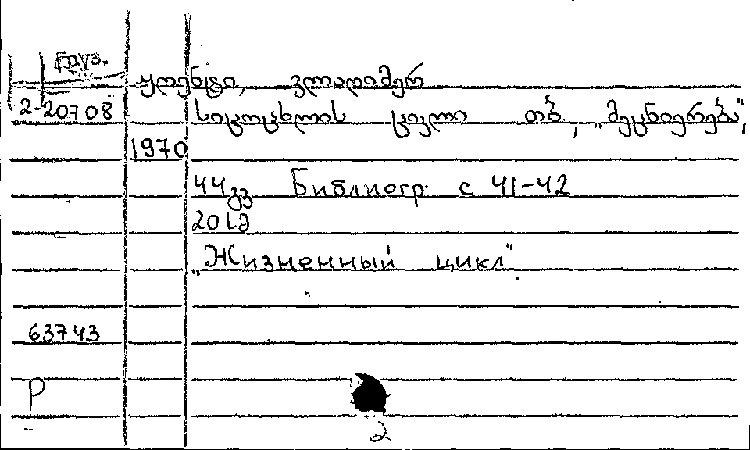 Груз.
ჟღენტი, ვლადიმერ
2-20708 სიცოცხლის ციკლი თბ, „მეცნიერება",
1970
44გვ Библиогр. с 41-42
„Жизненный цикл"
63743
P
2